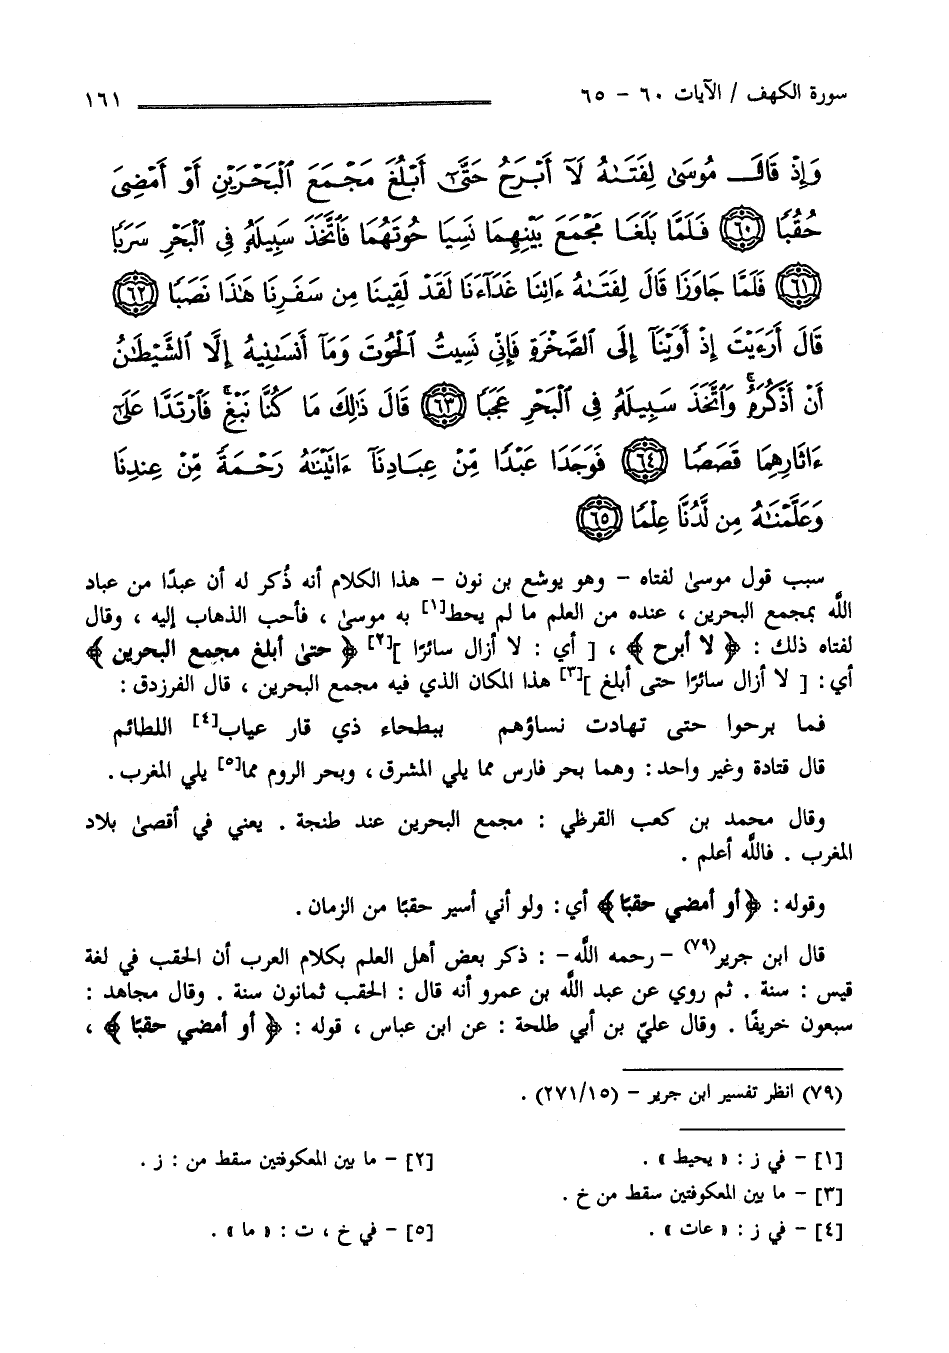 سورة الكهف / الآيات ٦٠ – ٦٥ ١٦١
وَإِذْ قَالَ مُوسَىٰ لِفَتَىٰهُ لَآ أَبْرَحُ حَتَّىٰٓ أَبْلُغَ مَجْمَعَ ٱلْبَحْرَيْنِ أَوْ أَمْضِىَ
حُقُبًا ﴿٦٠﴾ فَلَمَّا بَلَغَا مَجْمَعَ بَيْنِهِمَا نَسِيَا حُوتَهُمَا فَٱتَّخَذَ سَبِيلَهُۥ فِى ٱلْبَحْرِ سَرَبًا
﴿٦١﴾ فَلَمَّا جَاوَزَا قَالَ لِفَتَىٰهُ ءَاتِنَا غَدَآءَنَا لَقَدْ لَقِينَا مِن سَفَرِنَا هَٰذَا نَصَبًا ﴿٦٢﴾
قَالَ أَرَءَيْتَ إِذْ أَوَيْنَآ إِلَى ٱلصَّخْرَةِ فَإِنِّى نَسِيتُ ٱلْحُوتَ وَمَآ أَنسَىٰنِيهُ إِلَّا ٱلشَّيْطَٰنُ
أَنْ أَذْكُرَهُۥ ۚ وَٱتَّخَذَ سَبِيلَهُۥ فِى ٱلْبَحْرِ عَجَبًا ﴿٦٣﴾ قَالَ ذَٰلِكَ مَا كُنَّا نَبْغِ ۚ فَٱرْتَدَّا عَلَىٰٓ
ءَاثَارِهِمَا قَصَصًا ﴿٦٤﴾ فَوَجَدَا عَبْدًا مِّنْ عِبَادِنَآ ءَاتَيْنَٰهُ رَحْمَةً مِّنْ عِندِنَا
وَعَلَّمْنَٰهُ مِن لَّدُنَّا عِلْمًا ﴿٦٥﴾
سبب قول موسىٰ لفتاه – وهو يوشع بن نون – هذا الكلام أنه ذُكر له أن عبدًا من عباد
اللَّه بمجمع البحرين ، عنده من العلم ما لم يحط[١] به موسىٰ ، فأحب الذهاب إليه ، وقال
لفتاه ذلك : ﴿ لا أبرح ﴾ ، [ أي : لا أزال سائرًا ][٢] ﴿ حتىٰ أبلغ مجمع البحرين ﴾
أي : [ لا أزال سائرًا حتى أبلغ ][٣] هذا المكان الذي فيه مجمع البحرين ، قال الفرزدق :
فما برحوا حتى تهادت نساؤهم ببطحاء ذي قار عياب[٤] اللطائم
قال قتادة وغير واحد : وهما بحر فارس مما يلي المشرق ، وبحر الروم مما[٥] يلي المغرب .
وقال محمد بن كعب القرظي : مجمع البحرين عند طنجة . يعني في أقصىٰ بلاد
المغرب . فاللَّه أعلم .
وقوله : ﴿ أو أمضي حقبًا ﴾ أي : ولو أني أسير حقبًا من الزمان .
قال ابن جرير(٧٩) – رحمه اللَّه – : ذكر بعض أهل العلم بكلام العرب أن الحقب في لغة
قيس : سنة . ثم روي عن عبد اللَّه بن عمرو أنه قال : الحقب ثمانون سنة . وقال مجاهد :
سبعون خريفًا . وقال عليّ بن أبي طلحة : عن ابن عباس ، قوله : ﴿ أو أمضي حقبًا ﴾ ،
(٧٩) انظر تفسير ابن جرير – (٢٧١/١٥) .
[١] – في ز : « يحيط » . [٢] – ما بين المعكوفتين سقط من : ز .
[٣] – ما بين المعكوفتين سقط من خ .
[٤] – في ز : « عات » . [٥] – في خ ، ت : « ما » .